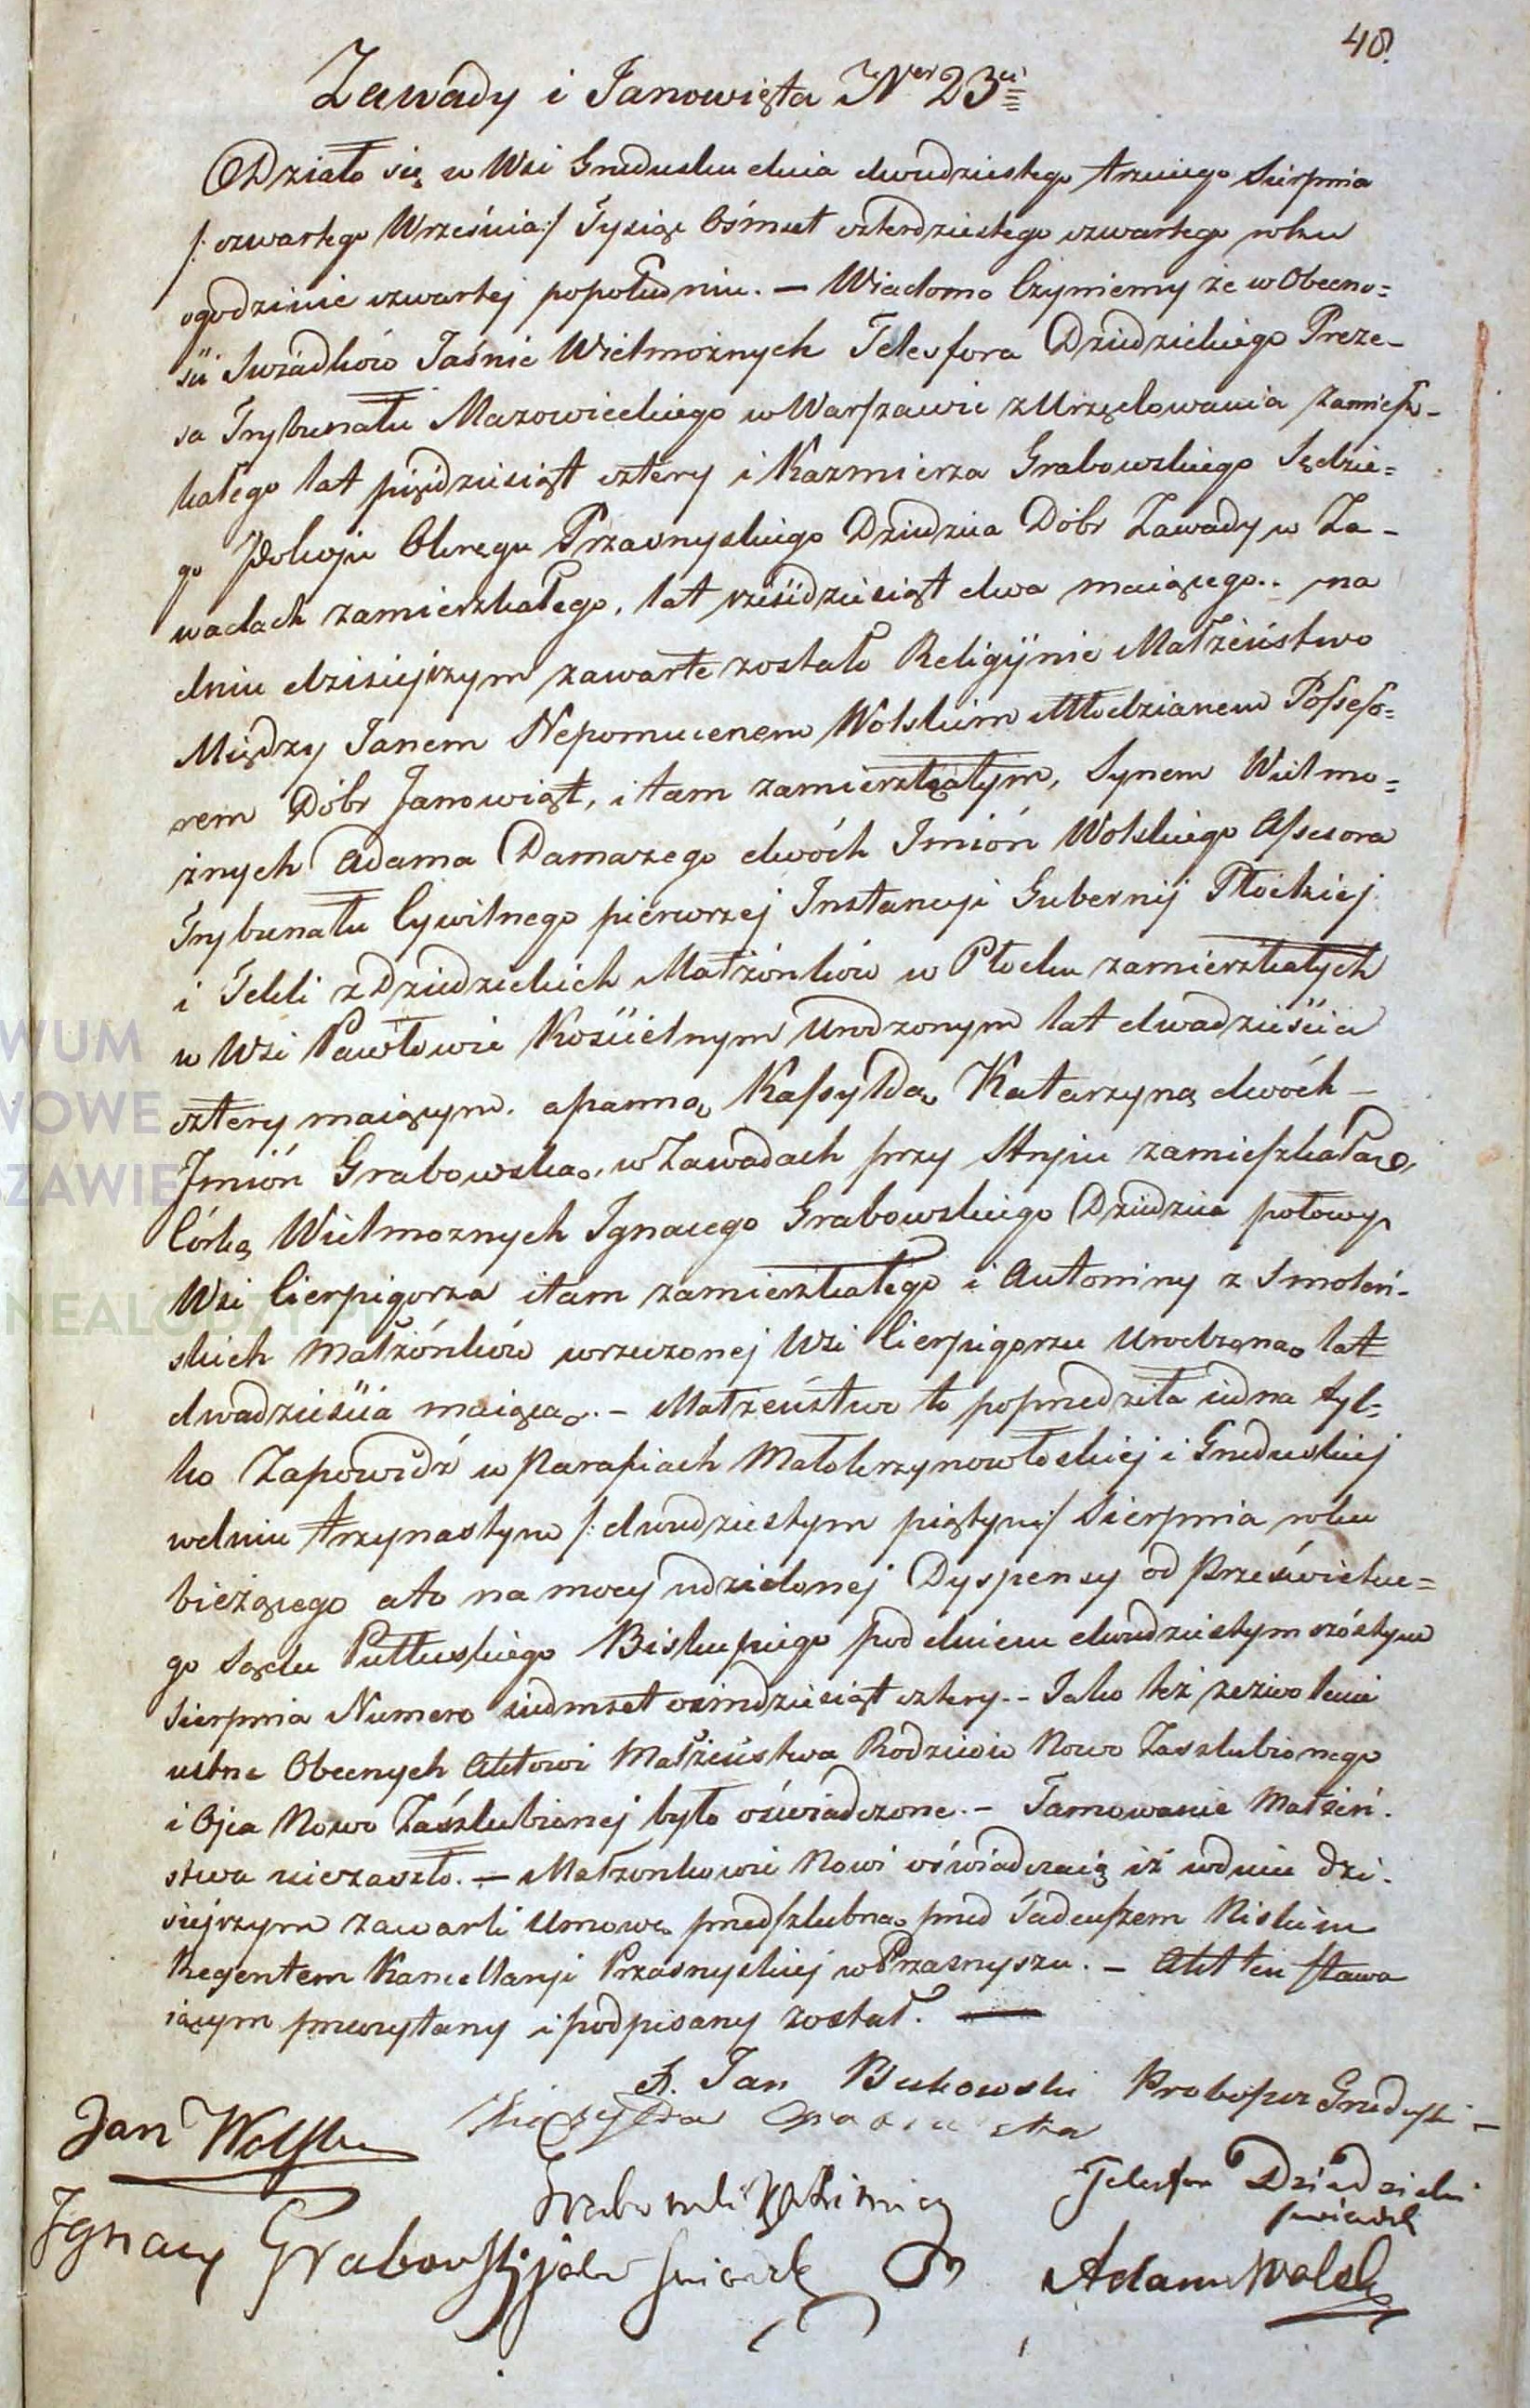 48.
Zawady i Janowięta Ner 23ci
Działo się w Wsi Grudusku dnia dwudziestego trzeciego Sierpnia
/: czwartego Września:/ Tysiąc Ośmset czterdziestego czwartego roku
ogodzinie czwartej popołudniu. — Wiadomo Czyniemy że w Obecno=
ści Swiadków Jaśnie Wielmożnych Telesfora Dziedzickiego Preze-
sa Trybunału Mazowieckiego w Warszawie z Urzędowania zamiesz-
kałego lat pięćdziesiąt cztery i Kazmierza Grabowskiego Sędzie=
go Pokoju Okręgu Przasnyskiego Dziedzica Dóbr Zawady w Za-
wadach zamieszkałego, lat sześćdziesiąt dwa maiącego.. na
dniu dzisiejszym zawarte zostało Religijnie Małżeństwo
Między Janem Nepomucenem Wolskim Młodzianem Possesso=
rem Dóbr Janowiąt, i tam zamieszkałym, Synem Wielmo=
żnych Adama Damazego dwóch Imión Wolskiego Assesora
Trybunału Cywilnego pierwszej Instancyi Gubernij Płockiej
i Tekli z Dziedzickich Małżónków w Płocku zamieszkałych
w Wsi Pawłowie Kościelnym Urodzonym lat dwadzieścia
cztery maiącym. a panną Kassyldą Katarzyną dwóch —
Imión Grabowską, w Zawadach przy Stryiu zamieszkałą,
Córką Wielmoznych Ignacego Grabowskiego Dziedzica połowy
Wsi Cierpigorza i tam zamieszkałego i Antoniny z Smoleń-
skich małżónków wrzeczonej Wsi Cierpigorzu Urodzoną lat
dwadzieścia maiącą. — Małżeństwo to poprzedziła iedna tyl=
ko Zapowiedź w Parafiach Małokrzynowłoskiej i Gruduskiej
wdniu trzynastym /: dwudziestym piątym:/ Sierpnia roku
bieżącego a to na mocy udzielonej Dyspensy od Prześwietne=
go Sądu Pułtuskiego Biskupiego pod dniem dwudziestym szóstym
Sierpnia Numero siedmset osimdziesiąt cztery. - Jako też zezwolenie
ustne Obecnych Aktowi Małżeństwa Rodziców Nowo Zaszlubionego
i Ojca Nowo Zaślubionej było oświadczone. — Tamowanie Małżeń.
stwa niezaszło. — Małżonkowie Nowi oświadczaią iż wdniu dzi.
siejszym zawarli Umowę przedszlubną przed Tadeuszem Niskim
Regentem Kancellaryi Przasnyskiej w Przasnyszu. — Akt ten stawa
iącym przeczytany i podpisany został. —
X. Jan Bukowski Proboszcz Gruduski
Jan Wolski
Grabowski Kazimierz
Telesfor Dziedzicki
swiadek
Ignacy Grabowski jako swiadek
Adam Wolski